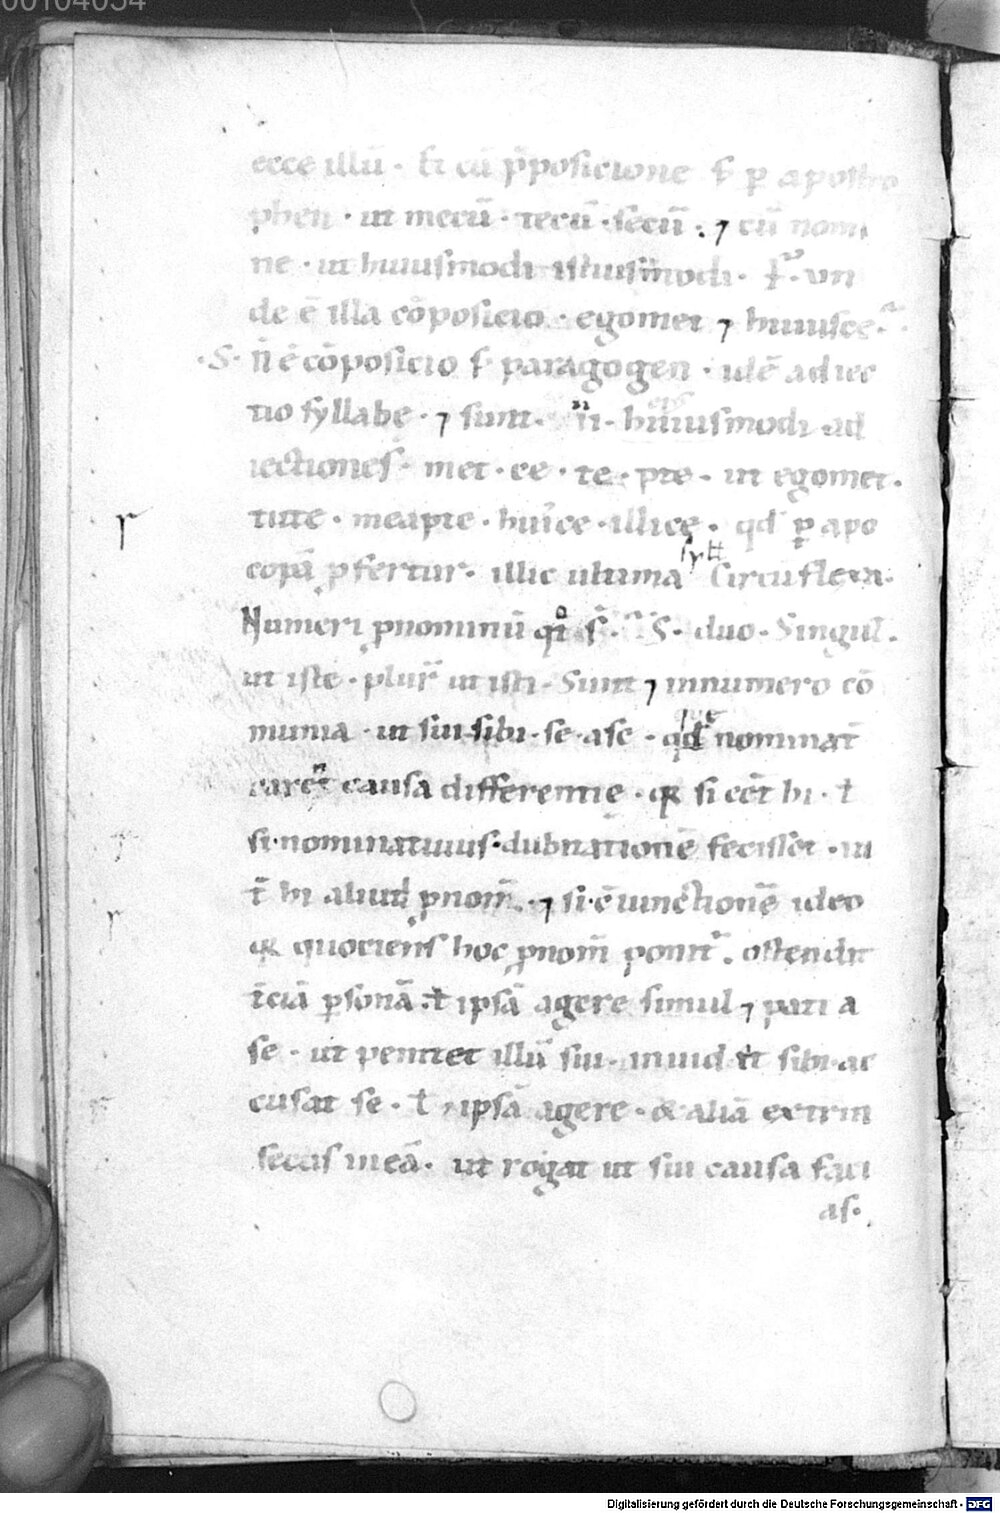 00104054
ecce illū · ƚi cū p̄posicione ẜ p̱ apostro
phen · ut mecū · tecū · secū · ⁊ cū nomi
ne · ut huiusmodi istiusmodi · un
de ē illa cōposicio · egomet ⁊ huiusce
·S· n̄ ē cōposicio ẜ paragogen · idē adiec
tio syllabe · ⁊ sunt · huiusmodi ad
iectiones · met · ce · te · pte · ut egomet ·
tute · meapte · huice · illice · qđ p̱ apo
copā pfertur · illic ultima syƚƚ Circūflexa ·
Numeri pnominū qͦt ẜ · S · duo · Singul ·
ut iste · plur̄ ut isti · Sunt ⁊ innumero cō
munia · ut sui · sibi · se · ase · qđ que nominat̄
caret causa differentie · si cēt hi · ƚ
si · nominatiuus · dubitationē fecisset · ut
t̄ hi aliud pnom̄ · ⁊ si · ē iunctionē ideo
quociens hoc pnom̄ ponit̄ · ostendit
t̄ciā p̱sonā · ƚ ipsā agere simul ⁊ pati a
se · ut penitet illū sui · inuidet sibi · ac
cusat se · ƚ ipsā agere · & aliā extrin
secus in eā · ut rogat ut sui causa faci
as ·
Digitalisierung gefördert durch die Deutsche Forschungsgemeinschaft - DFG